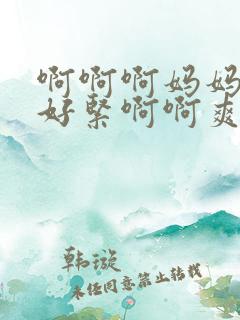 啊啊啊妈妈
好緊啊啊爽
韩漩
未经同意禁止转载